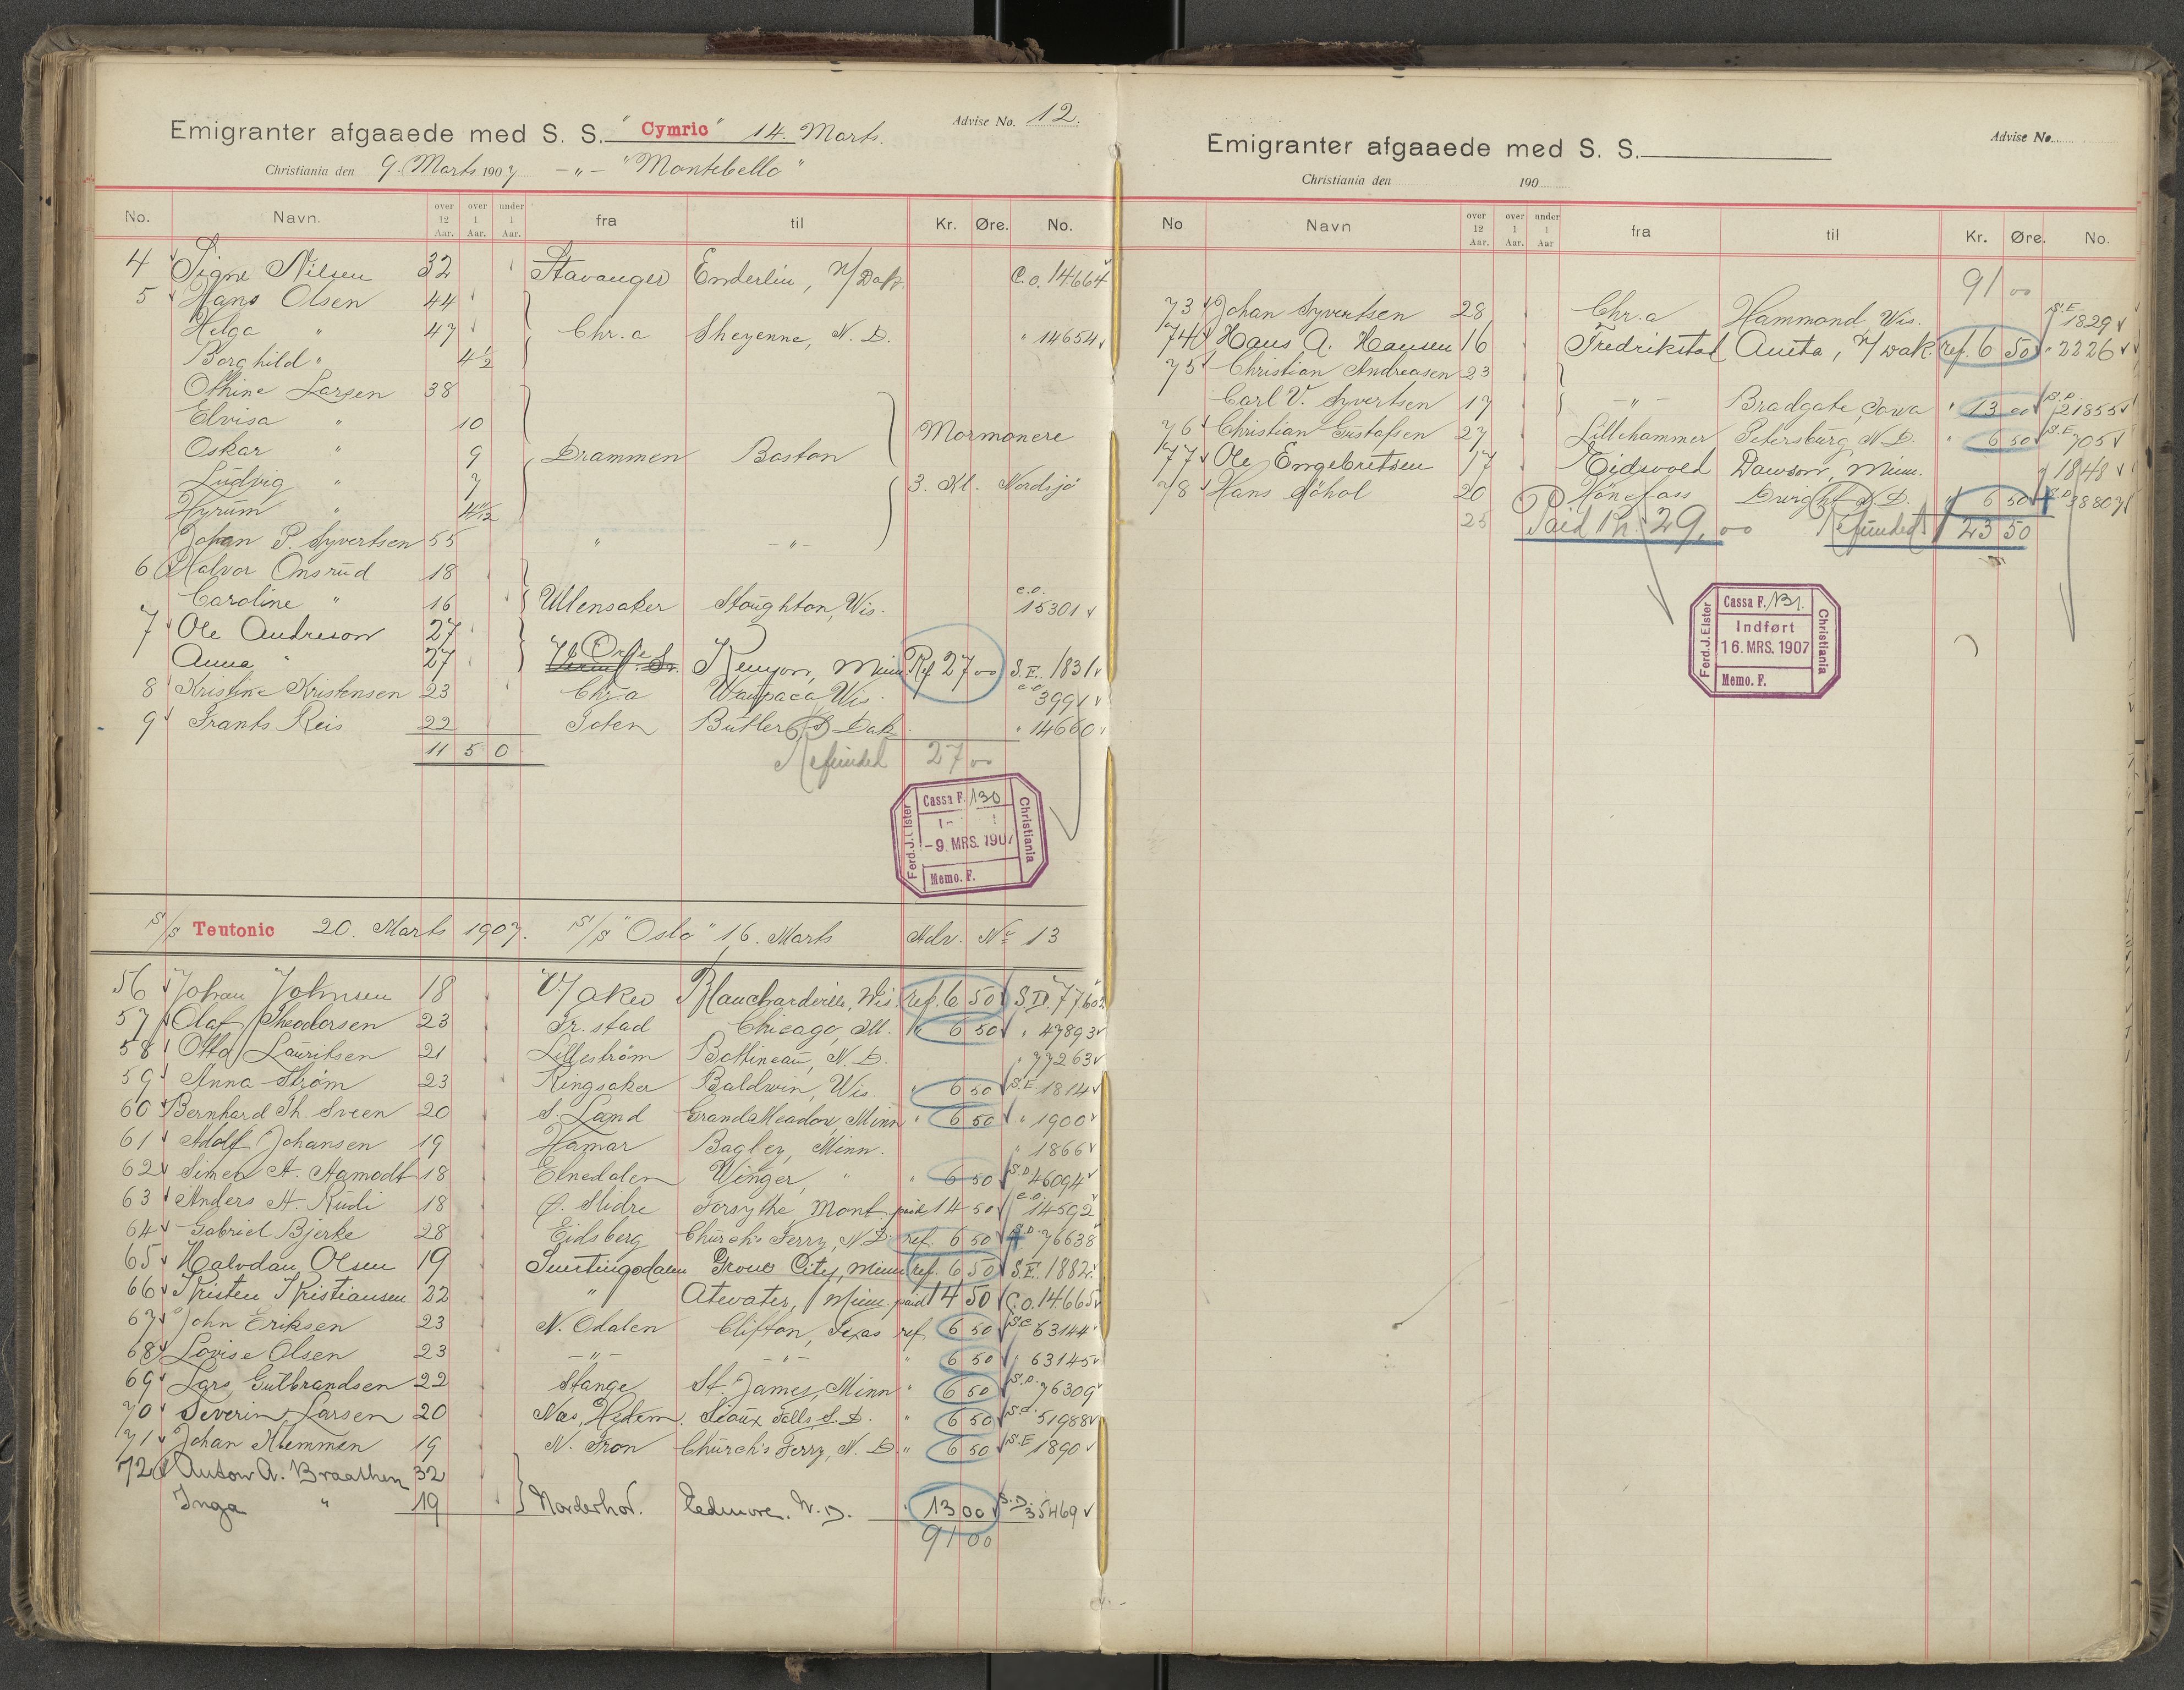 Emigranter afgaaede med S. S. "Cymric" 14. Marts. Advise No. 12.
Christiania den 9. Marts 1907 -"- "Montebello"
No. Navn. over 12 Aar. over 1 Aar. under 1 Aar. fra til Kr. Øre. No.
4 Signe Nilsen 32 Stavanger Enderlin, N/Dak. C.O. 14664
5 Hans Olsen 44
Helga " 47 Chr.a Sheyenne, N. D. " 14654
Borghild " 4 1/2
Othine Larsen 38
Elvisa " 10 Mormonere
Oskar " 9 Drammen Boston
Ludvig " 7 3. Kl. Nordsjö
Hyrum " 4 11/12
Johan P. Syvertsen 55 " -"-
6 Halvor Onsrud 18
Caroline " 16 Ullensaker Stoughton, Wis. C.O. 15301
7 Ole Andreson 27
Anna " 27 Kenyon, Minn. Ref. 27 00 S.E. 1831
8 Kristine Kristensen 23 Chr.a Waupaca Wis. C.O. 3991
9 Frants Reis 22 Toten Butler S Dak. " 14660
11 5 0 Refunded 27 00
Ferd. J. Elster Cassa F. 130 Christiania
-9. MRS. 1907
Memo. F.
S/S Teutonic 20. Marts 1907. S/S "Oslo" 16. Marts Adv. No 13
56 Johan Johnsen 18 V/Aker Blanchardville, Wis. ref. 6 50 S.D. 77602
57 Olaf Theodorsen 23 Fr.stad Chicago, Ill. " 6 50 " 47893
58 Otto Lauritsen 21 Lilleström Bottineau, N. D. " 77263
59 Anna Strøm 23 Ringsaker Baldwin, Wis. " 6 50 S.E. 1814
60 Bernhard Th. Sveen 20 S. Land Grand Meadow, Minn " 6 50 " 1900
61 Adolf Johansen 19 Hamar Bagley, Minn. " 1866
62 Simen A. Aamodt 18 Elnedalen Winger, " " 6 50 S.D. 46094
63 Anders A. Rudi 18 Ø. Slidre Forsythe Mont. paid 14 50 C.O. 14592
64 Gabriel Bjerke 28 Eidsberg Church's Ferry, N.D. ref. 6 50 S.D. 76638
65 Halvdan Olsen 19 Snertingdalen Grove City, Minn ref. 6 50 S.E. 1882
66 Kristen Kristiansen 22 " Atwater, Minn. paid 14 50 C.O. 14665
67 John Eriksen 23 N. Odalen Clifton, Texas ref 6 50 S.C. 63144
68 Lovise Olsen 23 -"- -"- " 6 50 " 63145
69 Lars Gulbrandsen 22 Stange St. James, Minn " 6 50 S.D. 76309
70 Severin Larsen 20 Næs, Hedem. Sioux Falls S. D. " 6 50 S.d. 51988
71 Johan Klemmen 19 N. Fron Church's Ferry, N. D. " 6 50 S.E 1890
72 Anton A. Braathen 32
Inga " 19 Norderhov. Edmore. N.D. " 13 00 S.D. 35469
91 00
Emigranter afgaaede med S. S. Advise No.
Christiania den 190
No Navn over 12 Aar. over 1 Aar. under 1 Aar fra til Kr. Øre. No.
91 00
73 Johan Syvertsen 28 Chr.a Hammond, Wis. S.E. 1829
74 Hans A. Hansen 16 Fredrikstad Aneta, N/Dak. ref. 6 50 " 2226
75 Christian Andreasen 23
Carl V. Syvertsen 17 -"- Bradgate, Iowa " 13 00 S.D. 21855
76 Christian Gustafsen 27 Lillehammer Petersburg, N.D. " 6 50 S.E 705
77 Ole Engebretsen 17 Eidsvold Dawson, Minn. " 1848
78 Hans Røhol 20 Hönefoss Dwight N.D. " 6 50 S.D. 38807
25 Paid Kr. 29.00 Refunded 123 50
Ferd. J. Elster Cassa F. 131. Christiania
Indført
16. MRS. 1907
Memo. F.